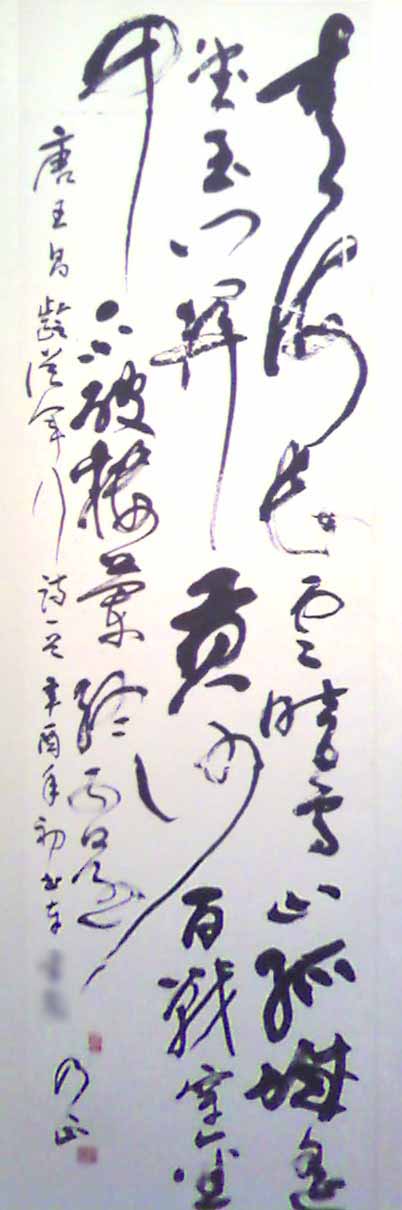 青海長雲暗雪山孤城遙
望玉門關黃沙百戰穿金
甲不破樓蘭終不還
唐王昌齡從軍行詩一首辛酉年初書
乃正